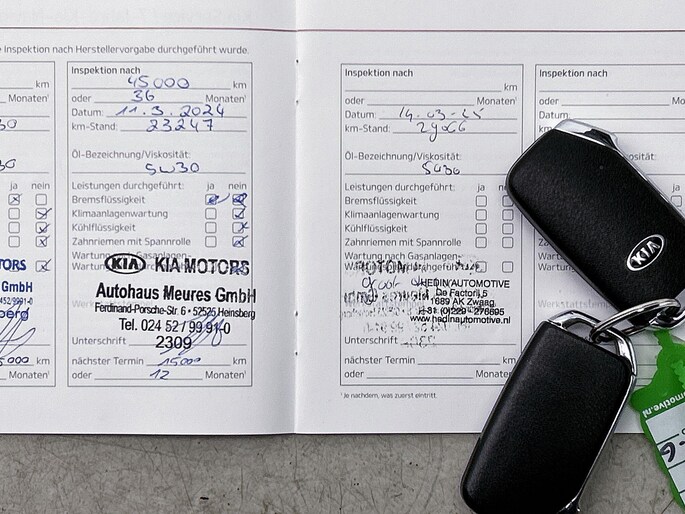 e Inspektion nach Herstellervorgabe durchgeführt wurde.
km
Monaten¹
ja nein
TORS
GmbH
452/9991-0
berg
5000 km
Monaten¹
Inspektion nach
45000 km
oder 36 Monaten¹
Datum: 11.3.2024
km-Stand: 23247
Öl-Bezeichnung/Viskosität:
5W30
Leistungen durchgeführt: ja nein
Bremsflüssigkeit
Klimaanlagenwartung
Kühlflüssigkeit
Zahnriemen mit Spannrolle
Wartung nach Gasanlagen-
KIA KIA MOTORS
Autohaus Meures GmbH
Ferdinand-Porsche-Str. 6 • 52525 Heinsberg
Tel. 024 52 / 99 91-0
2309
Unterschrift
nächster Termin 15000 km
oder 12 Monaten¹
Inspektion nach
km
oder Monaten¹
Datum: 14-03-25
km-Stand:
Öl-Bezeichnung/Viskosität:
5W30
Leistungen durchgeführt: ja nein
Bremsflüssigkeit
Klimaanlagenwartung
Kühlflüssigkeit
Zahnriemen mit Spannrolle
Wartung nach Gasanlagen-
HEDIN AUTOMOTIVE
De Factorij 5
1689 AK Zwaag
+31 (0)229-276695
www.hedinautomotive.nl
Unterschrift
nächster Termin km
oder Monaten¹
¹Je nachdem, was zuerst eintritt.
Inspektion nach
oder
Datum:
km-Stand
Öl-Bezeichnung
KIA
omotive.nl